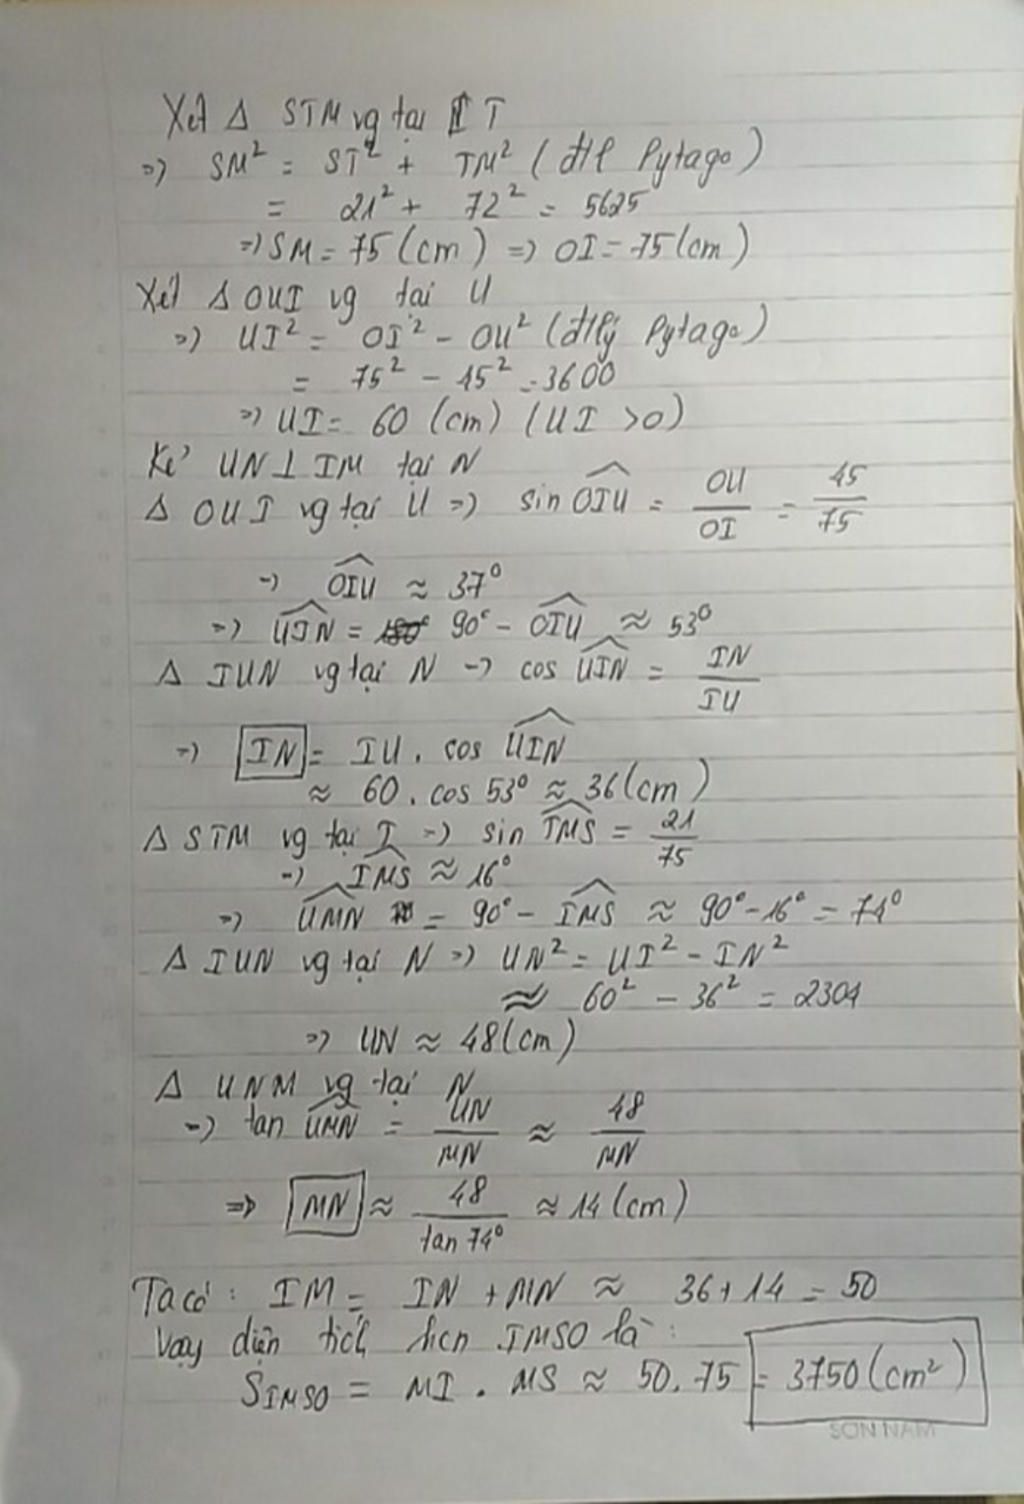 Xét Δ STM vg tại T
=> SM² = ST² + TM² (đlí Pytago)
= 21² + 72² = 5625
=> SM = 75 (cm) => OI = 75 (cm)
Xét Δ OUI vg tại U
=> UI² = OI² - OU² (đlý Pytago)
= 75² - 45² = 3600
=> UI = 60 (cm) (UI > 0)
Kẻ UN ⊥ IM tại N
Δ OUI vg tại U => sin OIU = OU/OI = 45/75
=> OIU ≈ 37°
=> UIN = 90° - OIU ≈ 53°
Δ IUN vg tại N => cos UIN = IN/IU
=> IN = IU . cos UIN
≈ 60 . cos 53° ≈ 36 (cm)
Δ STM vg tại I => sin TMS = 21/75
=> IMS ≈ 16°
=> UMN = 90° - IMS ≈ 90° - 16° = 74°
Δ IUN vg tại N => UN² = UI² - IN²
≈ 60² - 36² = 2304
=> UN ≈ 48 (cm)
Δ UNM vg tại N
=> tan UMN = UN/MN ≈ 48/MN
=> MN ≈ 48/tan 74° ≈ 14 (cm)
Ta có : IM = IN + MN ≈ 36 + 14 = 50
Vậy diện tích hcn IMSO là :
SIMSO = MI . MS ≈ 50 . 75 = 3750 (cm²)
SON NAM